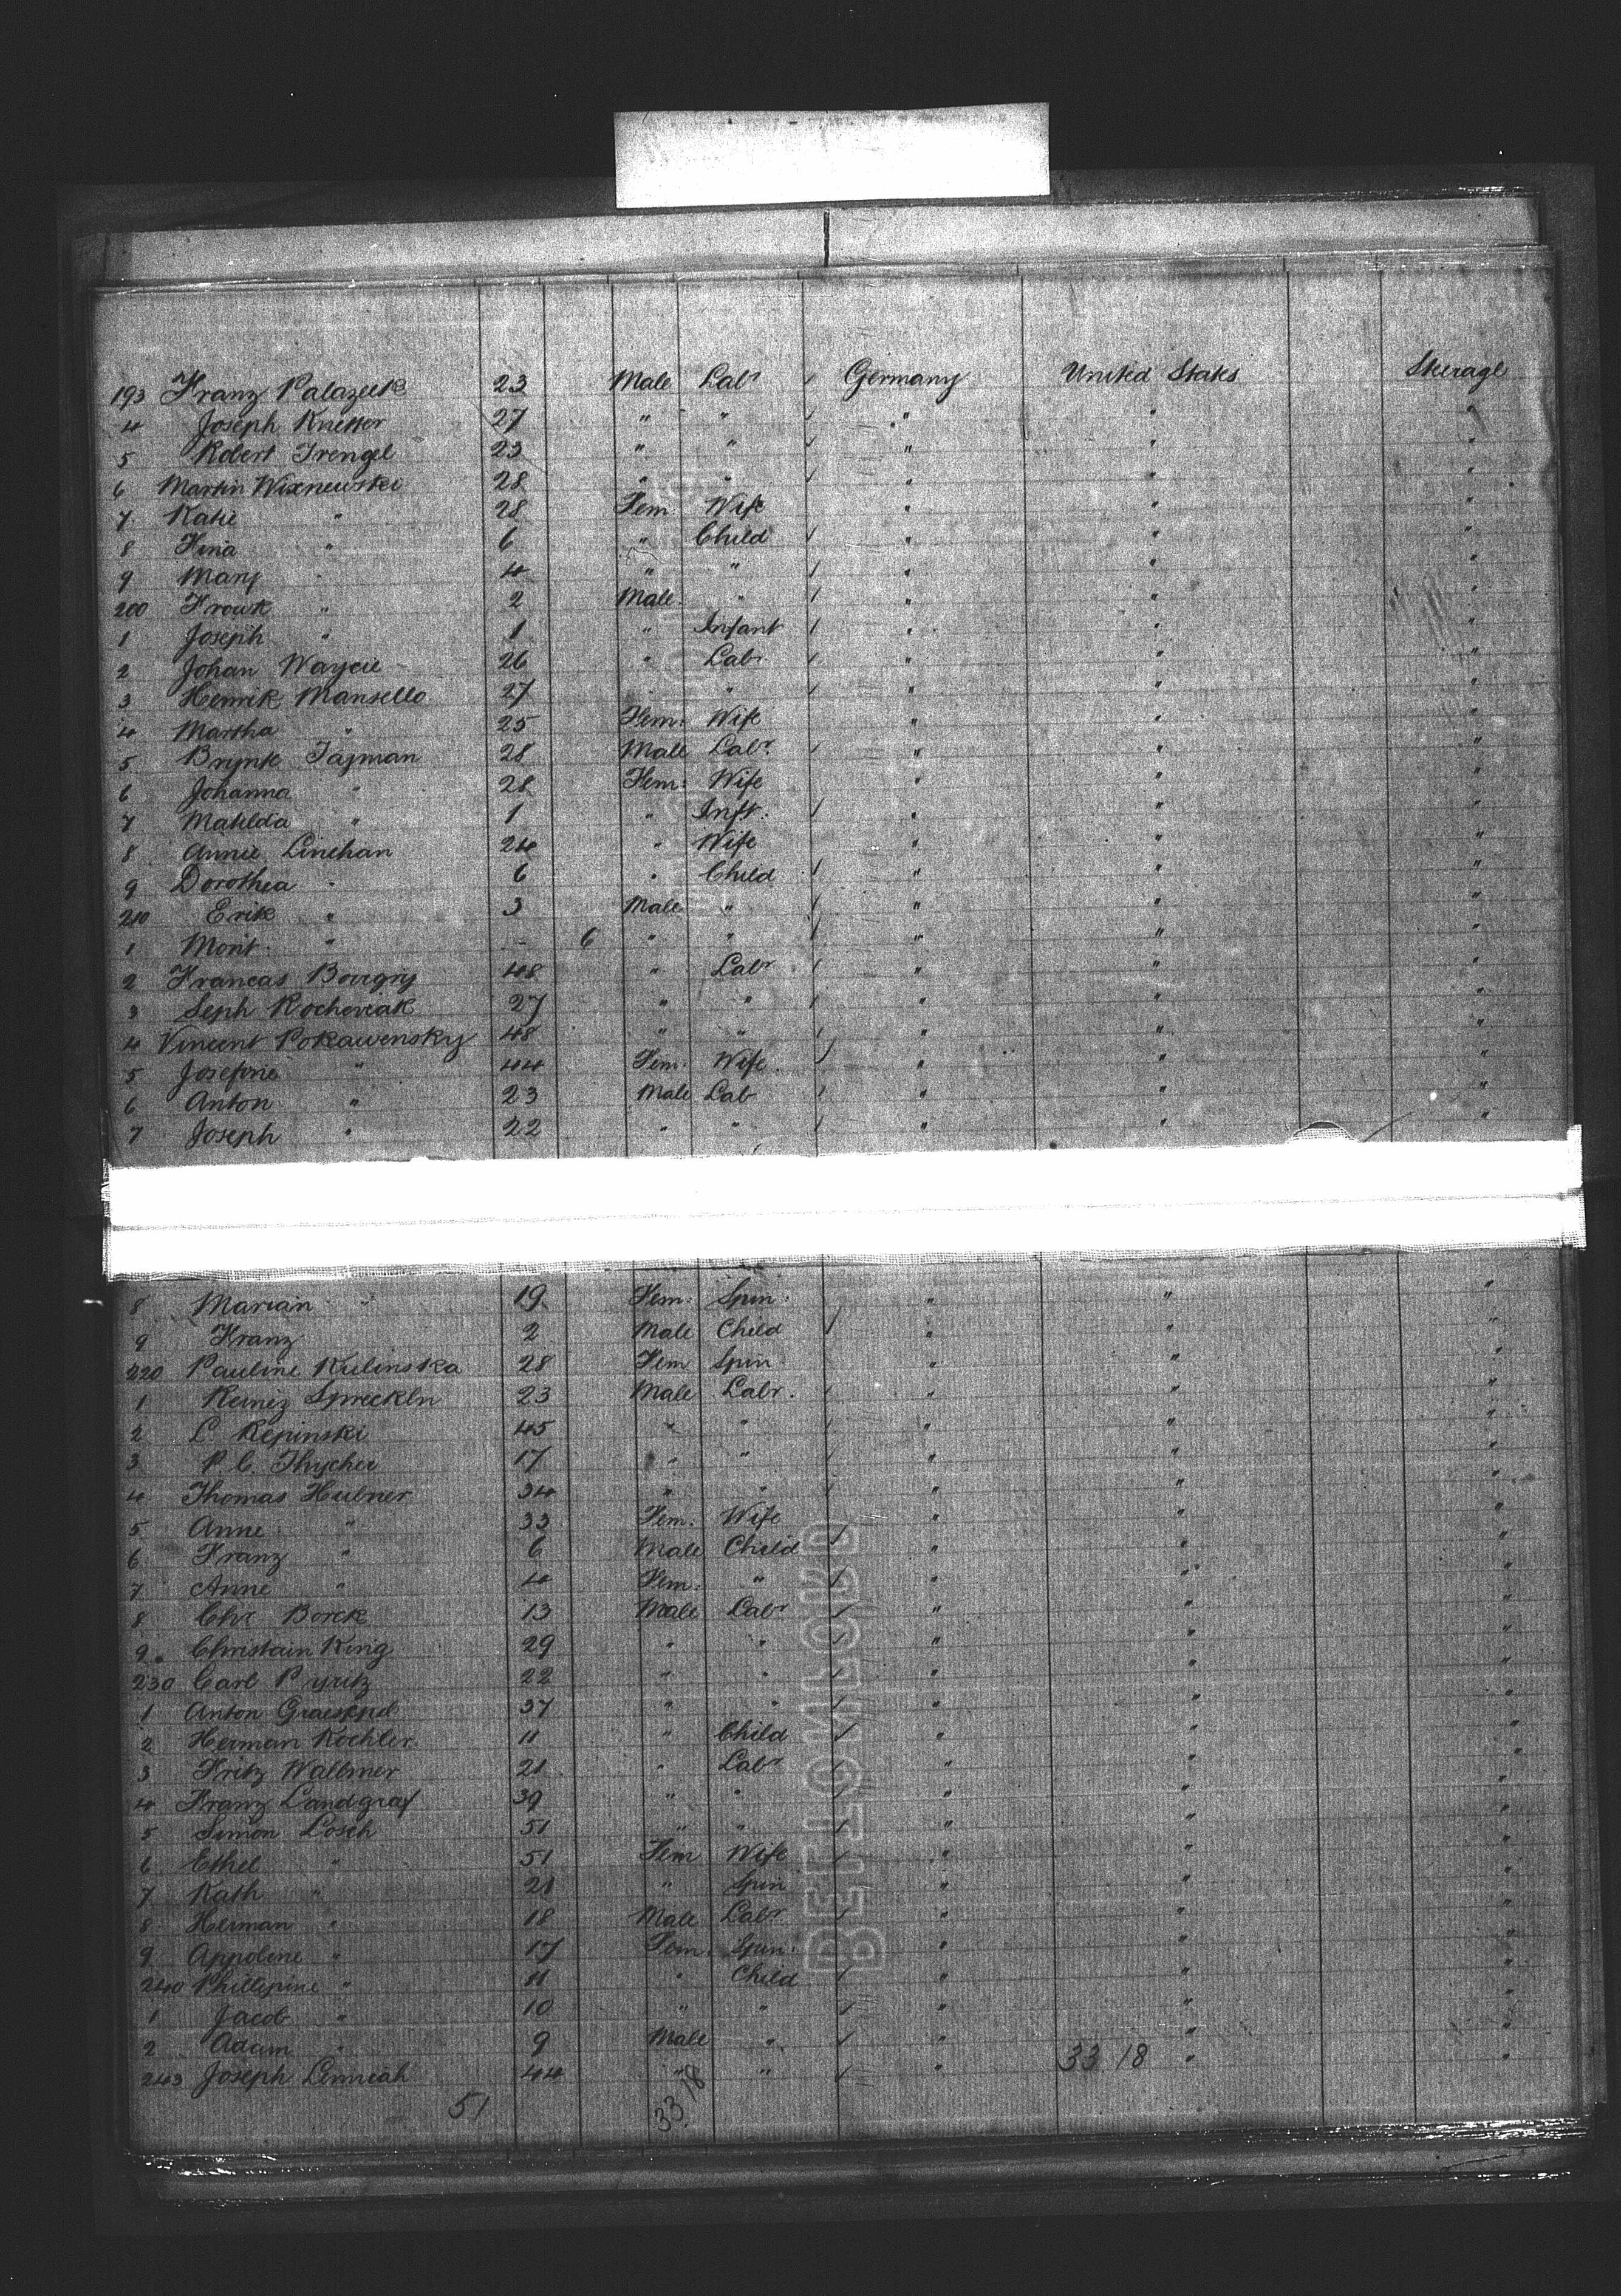 193 Franz Palazeck 23 Male Labr / Germany United States Steerage
4 Joseph Knetter 27 " " / " " "
5 Robert Trengel 23 " " / " " "
6 Martin Wixnewski 28 " " / " " "
7 Katie " 28 Fem Wife " " "
8 Fina " 6 " Child / " " "
9 Mary " 4 " " / " " "
200 Frank " 2 Male " / " " "
1 Joseph " 1 " Infant / " " "
2 Johan Waycie 26 " Labr / " " "
3 Henrik Mansello 27 " " / " " "
4 Martha " 25 Fem: Wife " " "
5 Brynk Tajman 28 Male Labr / " " "
6 Johanna " 28 Fem: Wife " " "
7 Matilda " 1 " Inft. / " " "
8 Annie Linehan 24 " Wife " " "
9 Dorothea " 6 " Child / " " "
210 Erik " 3 Male " / " " "
1 Morit " - 6 " " / " " "
2 Francas Bovigry 48 " Labr / " " "
3 Seph Kocheviak 27 " " / " " "
4 Vincent Pokawensky 48 " " / " " "
5 Josefine " 44 Fem: Wife / " " "
6 Anton " 23 Male Lab / " " "
7 Joseph " 22 " " / " " "
8 Marian " 19 Fem: Spin: / " " "
9 Franz 2 Male Child / " " "
220 Pauline Kulinska 28 Fem Spin " " "
1 Reiniz Spreckln 23 Male Labr. / " " "
2 L Repinski 45 " " / " " "
3 P. C. Thycher 17 " " / " " "
4 Thomas Hubner 34 " " / " " "
5 Anne " 33 Fem: Wife / " " "
6 Franz " 6 Male Child / " " "
7 Anne " 4 Fem: " / " " "
8 Chr Borck 13 Male Labr / " " "
9 Christain King 29 " " / " " "
230 Carl Pyritz 22 " " / " " "
1 Anton 37 " " / " " "
2 Herman Kochler 11 " Child / " " "
3 Fritz Wallmer 21 " Labr / " " "
4 Franz Landgraf 39 " " / " " "
5 Simon Losch 51 " " / " " "
6 Ethel " 51 Fem Wife / " " "
7 Kath " 21 " Spin " " "
8 Herman " 18 Male Labr / " " "
9 Appolene " 17 Fem: Spin: " " "
240 Phillipine " 11 " Child / " " "
1 Jacob " 10 " " / " " "
2 Adam " 9 Male " / " " "
243 Joseph Lenniah 44 " " / " 33 18 " "
51 33 18